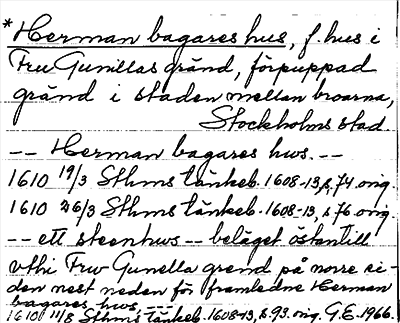 *Herman bagares hus, f. hus i
Fru Gunillas gränd, förpuppad
gränd i staden mellan broarna,
Stockholms stad
-- Herman bagares hws. --
1610 19/3 Sthms tänkeb. 1608-13, s. 74 orig.
1610 26/3 Sthms tänkeb. 1608-13, s. 76 orig.
-- ett steenhws -- beläget östantill
vthi Frw Gunella grend på norre si-
den nest neden för framledne Herman
bagares hws, ---
1610 11/8 Sthms tänkeb. 1608-13, s. 93. orig. G.E. 1966.